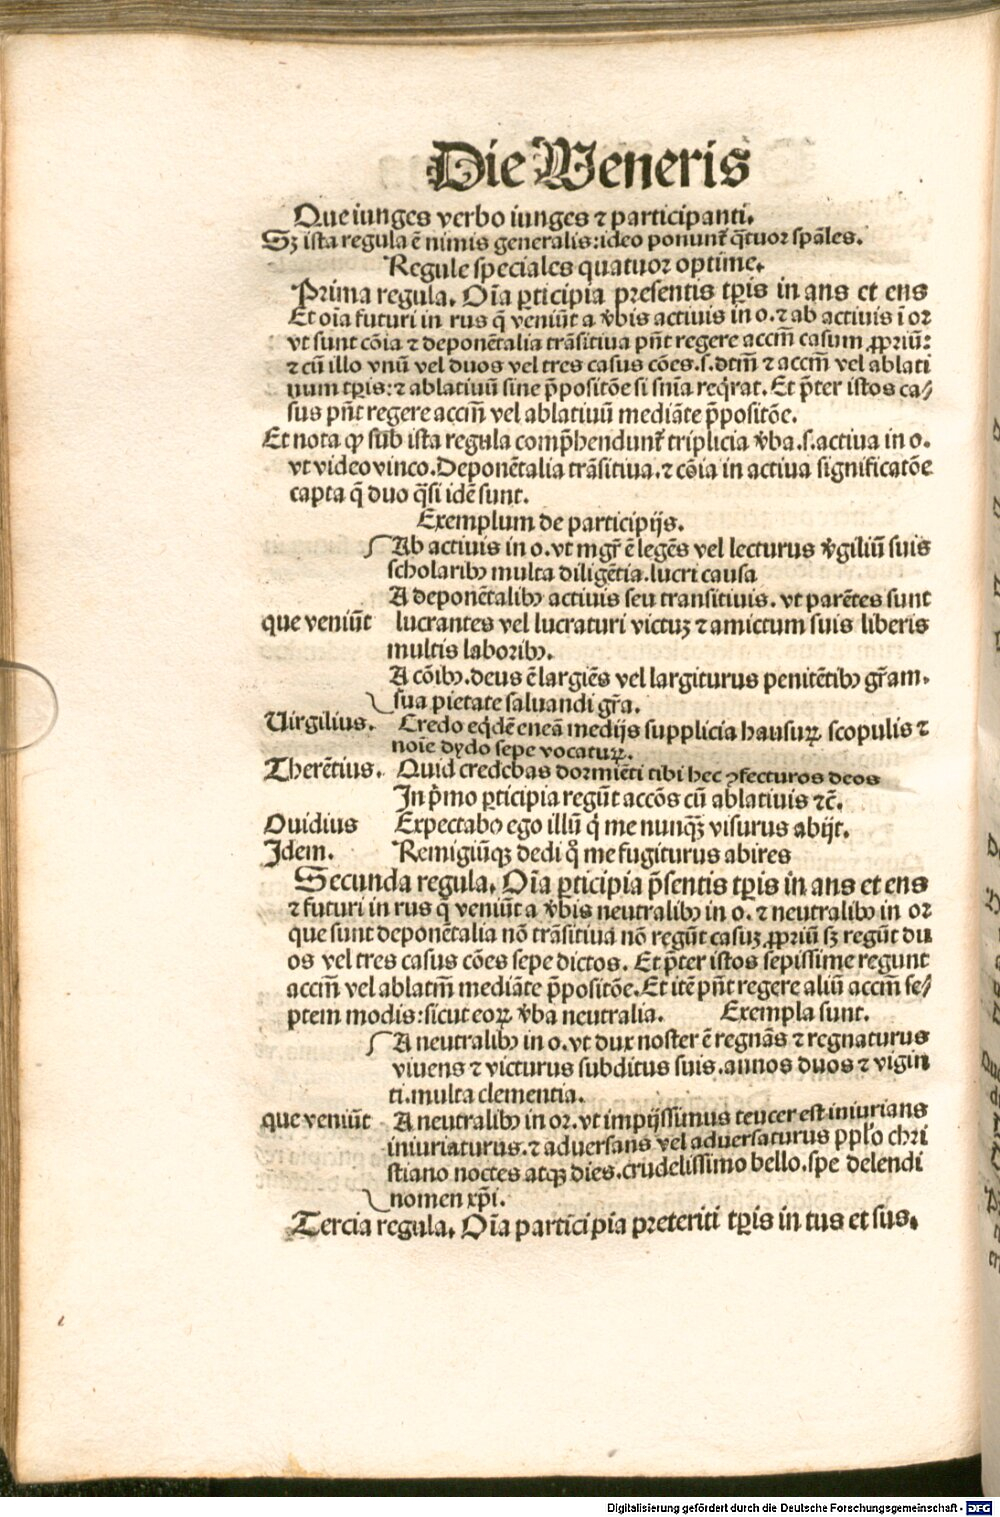 Die Veneris
Que iunges verbo iunges ⁊ participanti.
Sꝫ ista regula ē nimis generalis:ideo ponunt᷑ q̄tuor sp̄ales.
Regule speciales quatuor optime.
Prima regula. Oīa ꝑticipia presentis tꝑis in ans et ens
Et oīa futuri in rus q̄ veniūt a v̄bis actiuis in o.⁊ ab actiuis ī or
vt sunt cōia ⁊ deponētalia trāsitiua pn̄t regere accm̄ casum ꝓpriū:
⁊ cū illo vnū vel duos vel tres casus cōes.s.dtm̄ ⁊ accm̄ vel ablati
uum tꝑis:⁊ ablatiuū sine p̄positōe si sn̄ia reqͥrat. Et p̄ter istos ca/
sus pn̄t regere accm̄ vel ablatiuū mediāte p̄positōe.
Et nota ꝙ sub ista regula comp̄hendunt᷑ triplicia v̄ba.s.actiua in o.
vt video vinco.Deponētalia trāsitiua.⁊ cōia in actiua significatōe
capta q̄ duo q̄si idē sunt.
Exemplum de participijs.
Ab actiuis in o.vt mgr̄ ē legēs vel lecturus v̄giliū suis
scholaribꝰ multa diligētia.lucri causa
A deponētalibꝰ actiuis seu transitiuis. vt parētes sunt
que veniūt lucrantes vel lucraturi victuꝫ ⁊ amictum suis liberis
multis laboribꝰ.
A cōibꝰ.deus ē largiēs vel largiturus penitētibꝰ gr̄am.
sua pietate saluandi gr̄a.
Uirgilius. Credo eqͥdē eneā medijs supplicia hausuꝝ scopulis ⁊
noīe dydo sepe vocatuꝝ.
Therētius. Quid credebas dormiēti tibi hec ꝯfecturos deos
In pͥmo ꝑticipia regūt accōs cū ablatiuis ⁊c̄.
Ouidius Expectabo ego illū qͥ me nunqꝫ̄ visurus abijt.
Idem. Remigiūqꝫ dedi qͦ me fugiturus abires
Secunda regula. Oīa ꝑticipia p̄sentis tꝑis in ans et ens
⁊ futuri in rus q̄ veniūt a v̄bis neutralibꝰ in o. ⁊ neutralibꝰ in or
que sunt deponētalia nō trāsitiua nō regūt casuꝫ ꝓpriū sꝫ regūt du
os vel tres casus cōes sepe dictos. Et p̄ter istos sepissime regunt
accm̄ vel ablatm̄ mediāte p̄positōe.Et itē pn̄t regere aliū accm̄ se/
ptem modis:sicut eoꝝ v̄ba neutralia. Exempla sunt.
A neutralibꝰ in o.vt dux noster ē regnās ⁊ regnaturus
viuens ⁊ victurus subditus suis.annos duos ⁊ vigin
ti.multa clementia.
que veniūt A neutralibꝰ in or.vt impijssimus teucer est iniurians
iniuriaturus.⁊ aduersans vel aduersaturus pplo chri
stiano noctes atqꝫ dies.crudelissimo bello.spe delendi
nomen xp̄i.
Tercia regula. Oīa participia preteriti tꝑis in tus et sus.
Digitalisierung gefördert durch die Deutsche Forschungsgemeinschaft - DFG